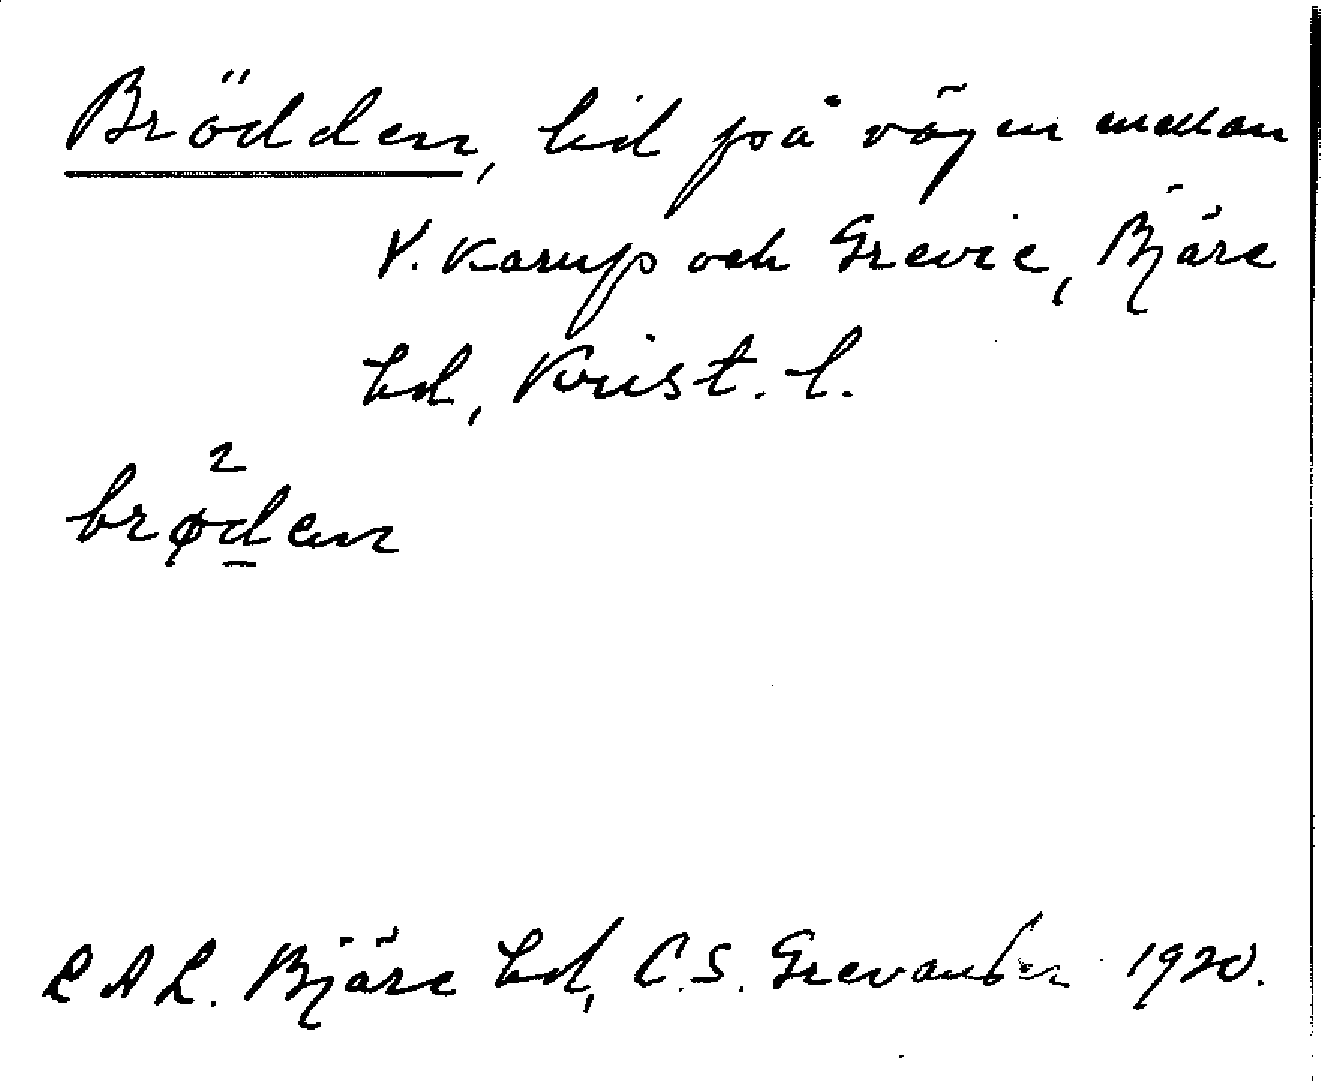 Brödden, lid på vägen mellan
V. Karup och Grevie, Bjäre
hd, Krist. l.
2
brøden
L A L. Bjäre hd, C. S. Grevander 1920.